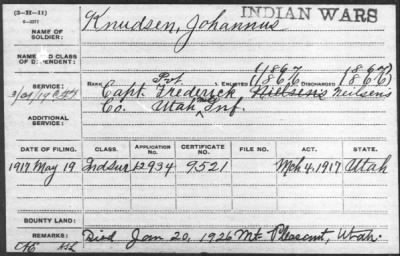 (3-21-11)
6-2271
INDIAN WARS
NAME OF SOLDIER: Knudsen, Johannus
NAME AND CLASS OF DEPENDENT:
RANK Pvt. ENLISTED (1867 DISCHARGED (1867)
(1866 (1866)
SERVICE: Capt. Frederick Nielsen's Neilsen's
Co. Utah Inf.
ADDITIONAL SERVICE:
DATE OF FILING. CLASS. APPLICATION NO. CERTIFICATE NO. FILE NO. ACT. STATE.
1917 May 19 Indsur 12934 9521 Mch 4, 1917 Utah
BOUNTY LAND:
REMARKS: Died Jan 20, 1926 Mt. Pleasant, Utah.